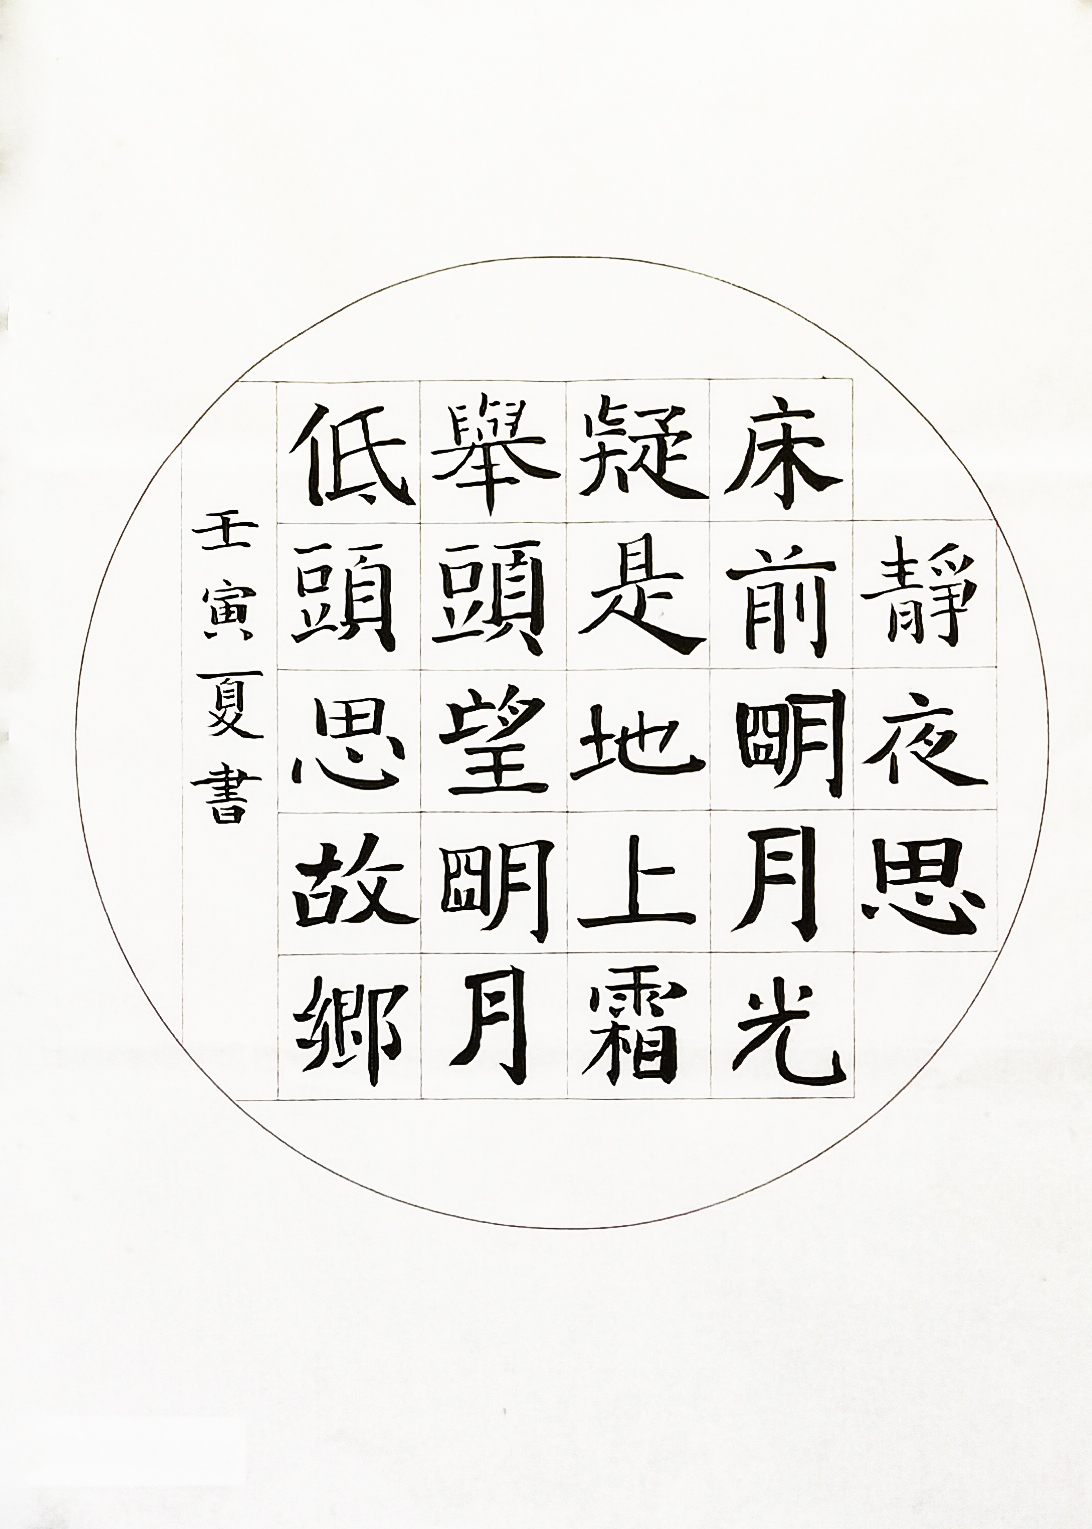 靜夜思
床前明月光
疑是地上霜
舉頭望明月
低頭思故鄉
壬寅夏書